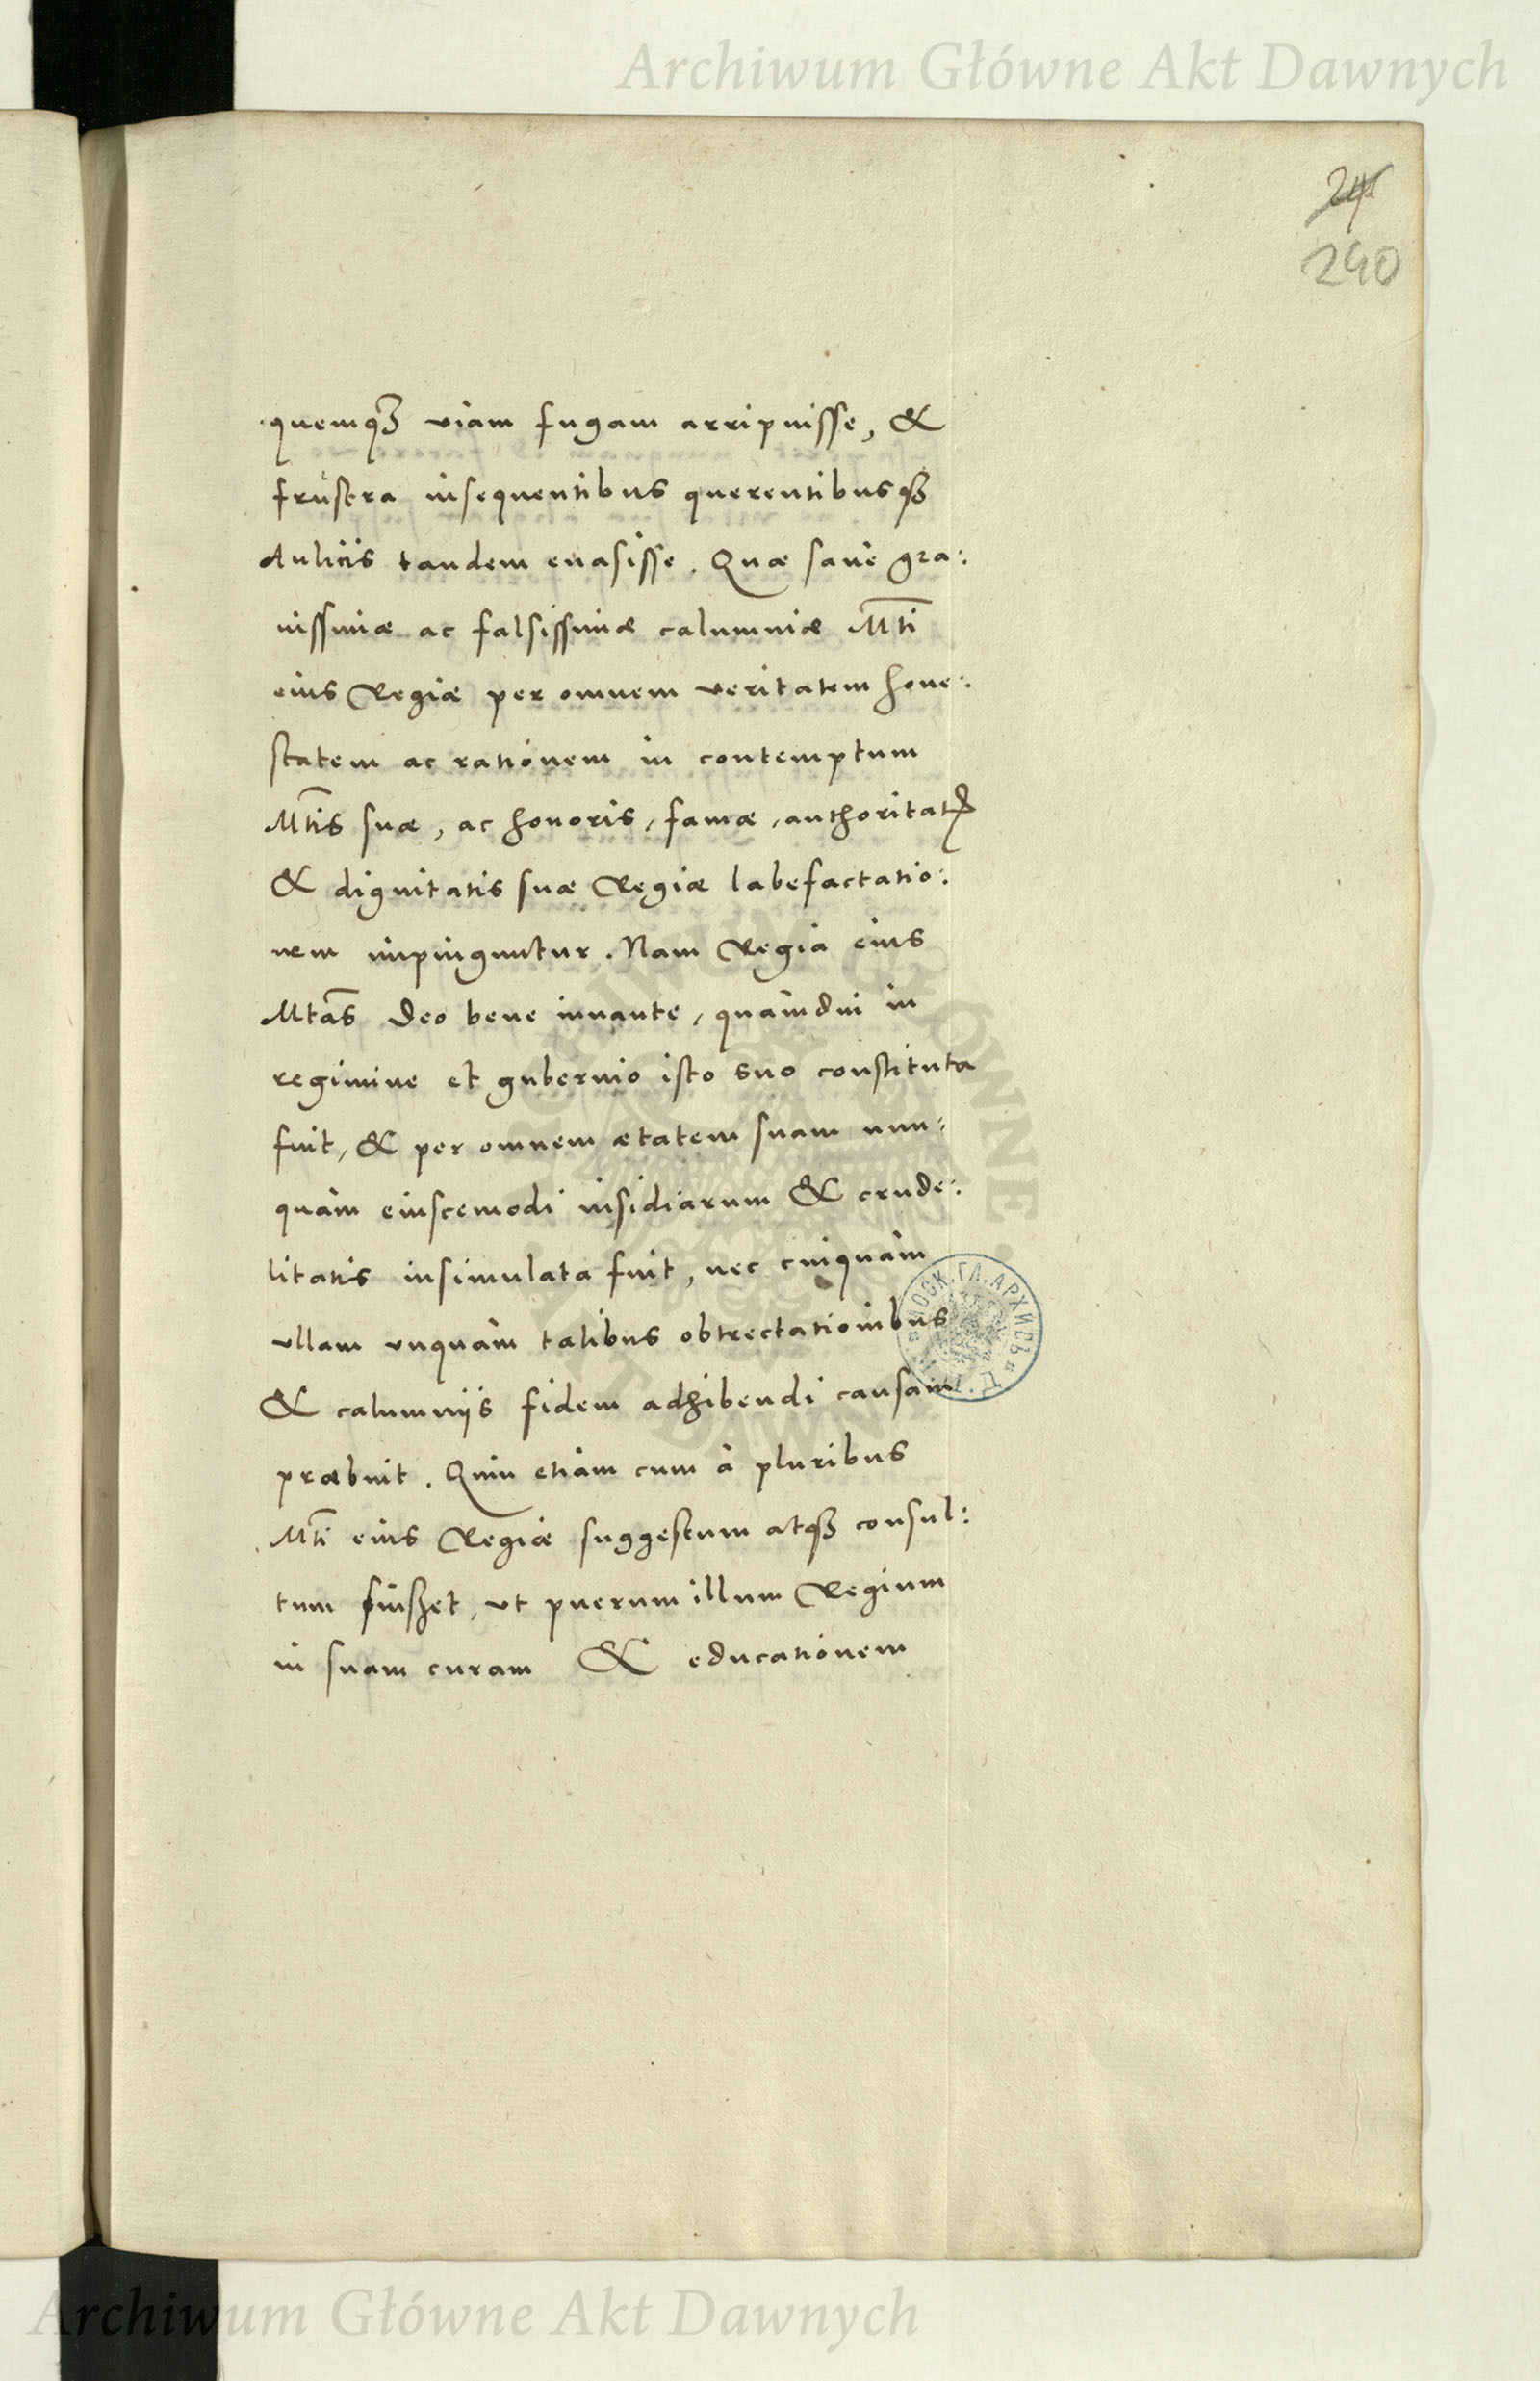 Archiwum Główne Akt Dawnych
24
240
quemqꝫ viam fugam arripuisse, &
frustra insequentibus querentibusqꝫ
Aulicis tandem euasisse. Quæ sane gra:
uissimæ ac falsissimæ calumniæ Mti
eius Regiæ per omnem veritatem hone:
statem ac rationem in contemptum
Mtis suæ, ac honoris, famæ, authoritatꝭ
& dignitatis suæ Regiæ labefactatio:
nem impinguntur. Nam Regia eius
Mtas Deo bene iuuante, quamdiu in
regimine et gubernio isto suo constituta
fuit, & per omnem ætatem suam nun:
quam eiuscemodi insidiarum & crude:
litatis insimulata fuit, nec cuiquam
ullam vnquam talibus obtrectationibus
& calumnijs fidem adhibendi causam
præbuit. Quin etiam cum à pluribus
Mti eius Regiæ suggestum atqꝫ consul:
tum fuisset, vt puerum illum Regium
in suam curam & educationem
Archiwum Główne Akt Dawnych